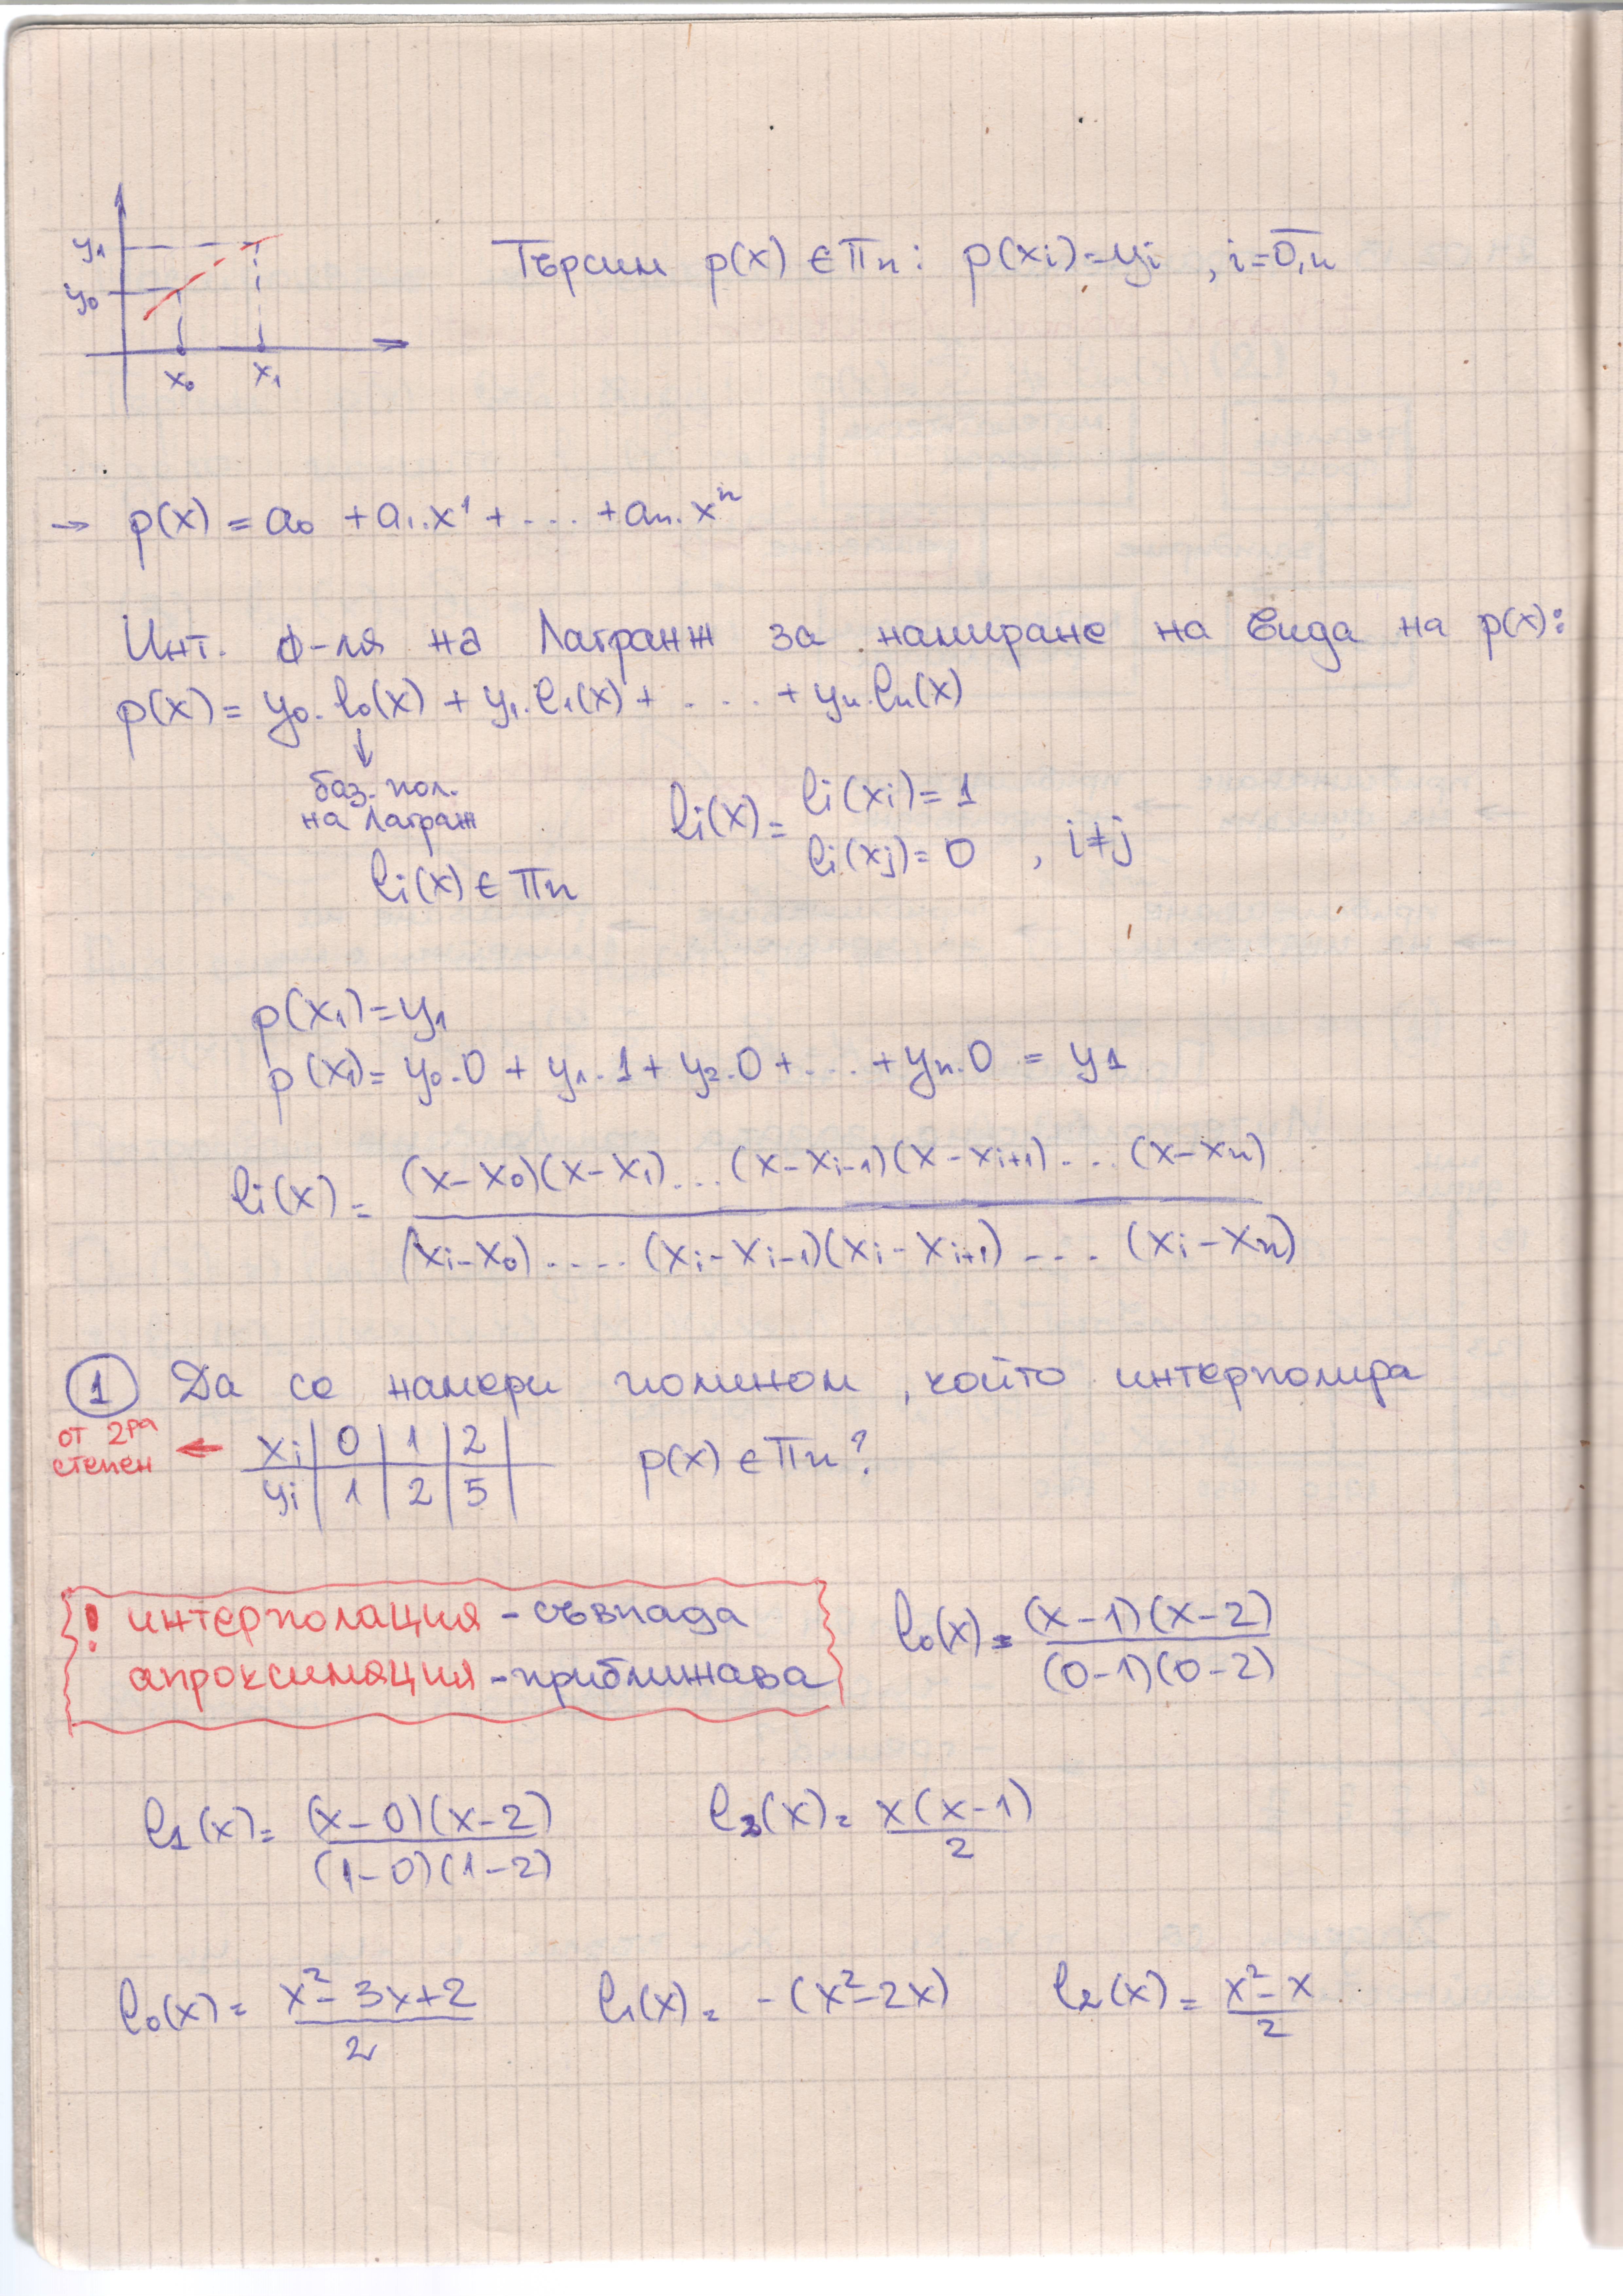 y₁
y₀
x₀ x₁
Търсим p(x) ∈ Πn : p(xi) = yi , i = 0,n
→ p(x) = a₀ + a₁.x¹ + .... + an.xⁿ
Инт. ф-ля на Лагранж за намиране на вида на p(x):
p(x) = y₀.l₀(x) + y₁.l₁(x) + .... + yn.ln(x)
↓
баз. пол.
на Лагранж
li(x) ∈ Πn
li(x) = li(xi) = 1
li(xj) = 0 , i ≠ j
p(x₁) = y₁
p(x₁) = y₀.0 + y₁.1 + y₂.0 + .... + yn.0 = y1
li(x) = (x-x₀)(x-x₁)...(x-xi-1)(x-xi+1)... (x-xn)
(xi-x₀).....(xi-xi-1)(xi-xi+1) .... (xi-xn)
① Да се намери полином , който интерполира
от 2ра
степен ←
xi | 0 | 1 | 2 |
yi | 1 | 2 | 5 |
p(x) ∈ Πn ?
! интерполация - съвпада
апроксимация - приближава
l₀(x) = (x-1)(x-2)
(0-1)(0-2)
l₁(x) = (x-0)(x-2)
(1-0)(1-2)
l₂(x) = x(x-1)
2
l₀(x) = x²-3x+2
2
l₁(x) = -(x²-2x)
l₂(x) = x²-x
2